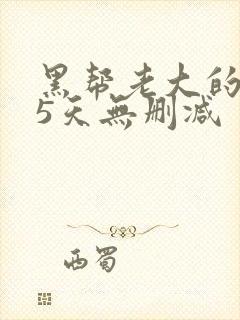 黑帮老大的
5天無删减
西蜀